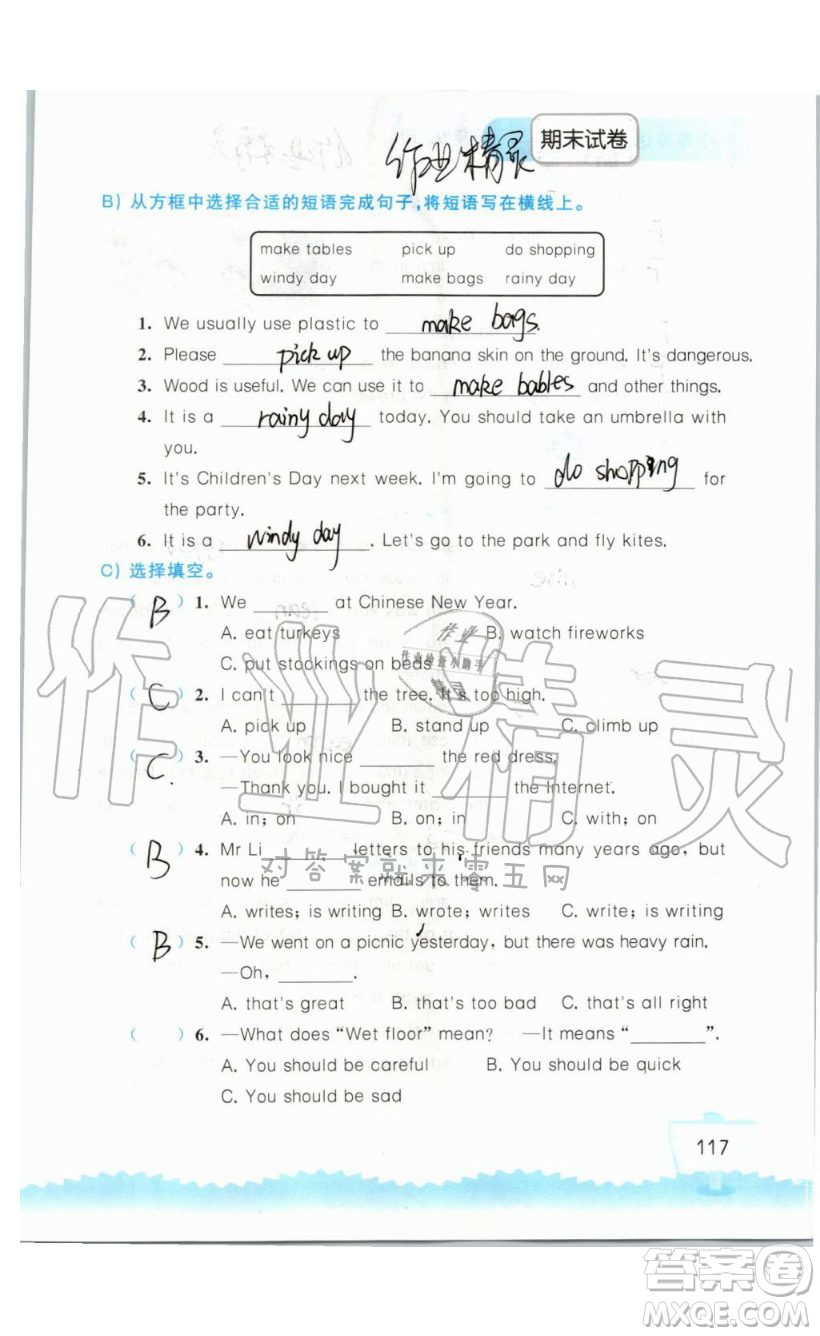 作业精灵
期末试卷
B) 从方框中选择合适的短语完成句子,将短语写在横线上。
make tables pick up do shopping
windy day make bags rainy day
1. We usually use plastic to make bags.
2. Please pick up the banana skin on the ground. It's dangerous.
3. Wood is useful. We can use it to make bables and other things.
4. It is a rainy day today. You should take an umbrella with
you.
5. It's Children's Day next week. I'm going to do shopping for
the party.
6. It is a windy day. Let's go to the park and fly kites.
C) 选择填空。
( B ) 1. We ________ at Chinese New Year.
A. eat turkeys B. watch fireworks
C. put stockings on beds
( C ) 2. I can't ________ the tree. It's too high.
A. pick up B. stand up C. climb up
( C ) 3. —You look nice ________ the red dress.
—Thank you. I bought it ________ the Internet.
A. in; on B. on; in C. with; on
( B ) 4. Mr Li ________ letters to his friends many years ago, but
now he ________ emails to them.
A. writes; is writing B. wrote; writes C. write; is writing
( B ) 5. —We went on a picnic yesterday, but there was heavy rain.
—Oh, ________.
A. that's great B. that's too bad C. that's all right
( ) 6. —What does “Wet floor” mean? —It means “________”.
A. You should be careful B. You should be quick
C. You should be sad
117
作业精灵
对答案就来零五网
答案圈
MXQE.COM